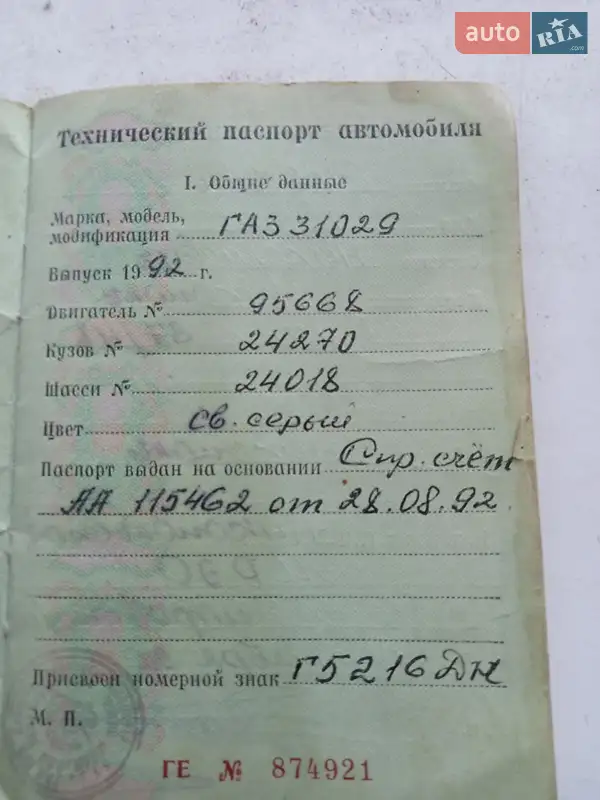 auto RIA .com
Технический паспорт автомобиля
I. Общие данные
Марка, модель,
модификация ГАЗ 31029
Выпуск 1992 г.
Двигатель № 95668
Кузов № 24270
Шасси № 24018
Цвет св. серый
Паспорт выдан на основании Спр. счёт
АА 115462 от 28.08.92
Присвоен номерной знак Г5216ДН
М. П.
ГЕ № 874921